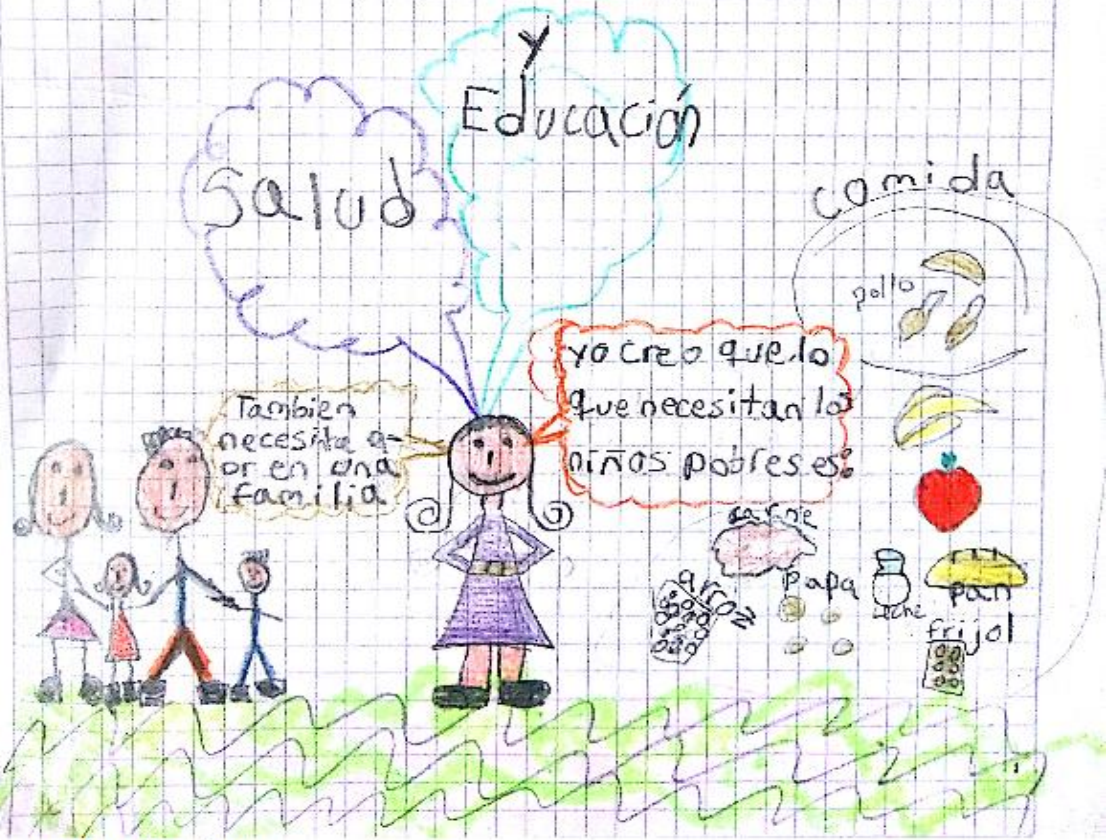 y
Educación
Salud
comida
pollo
yo creo que lo
que necesitan los
niños pobres es:
Tambien
necesita a-
or en una
familia
carne
arroz
papa
leche
pan
frijol